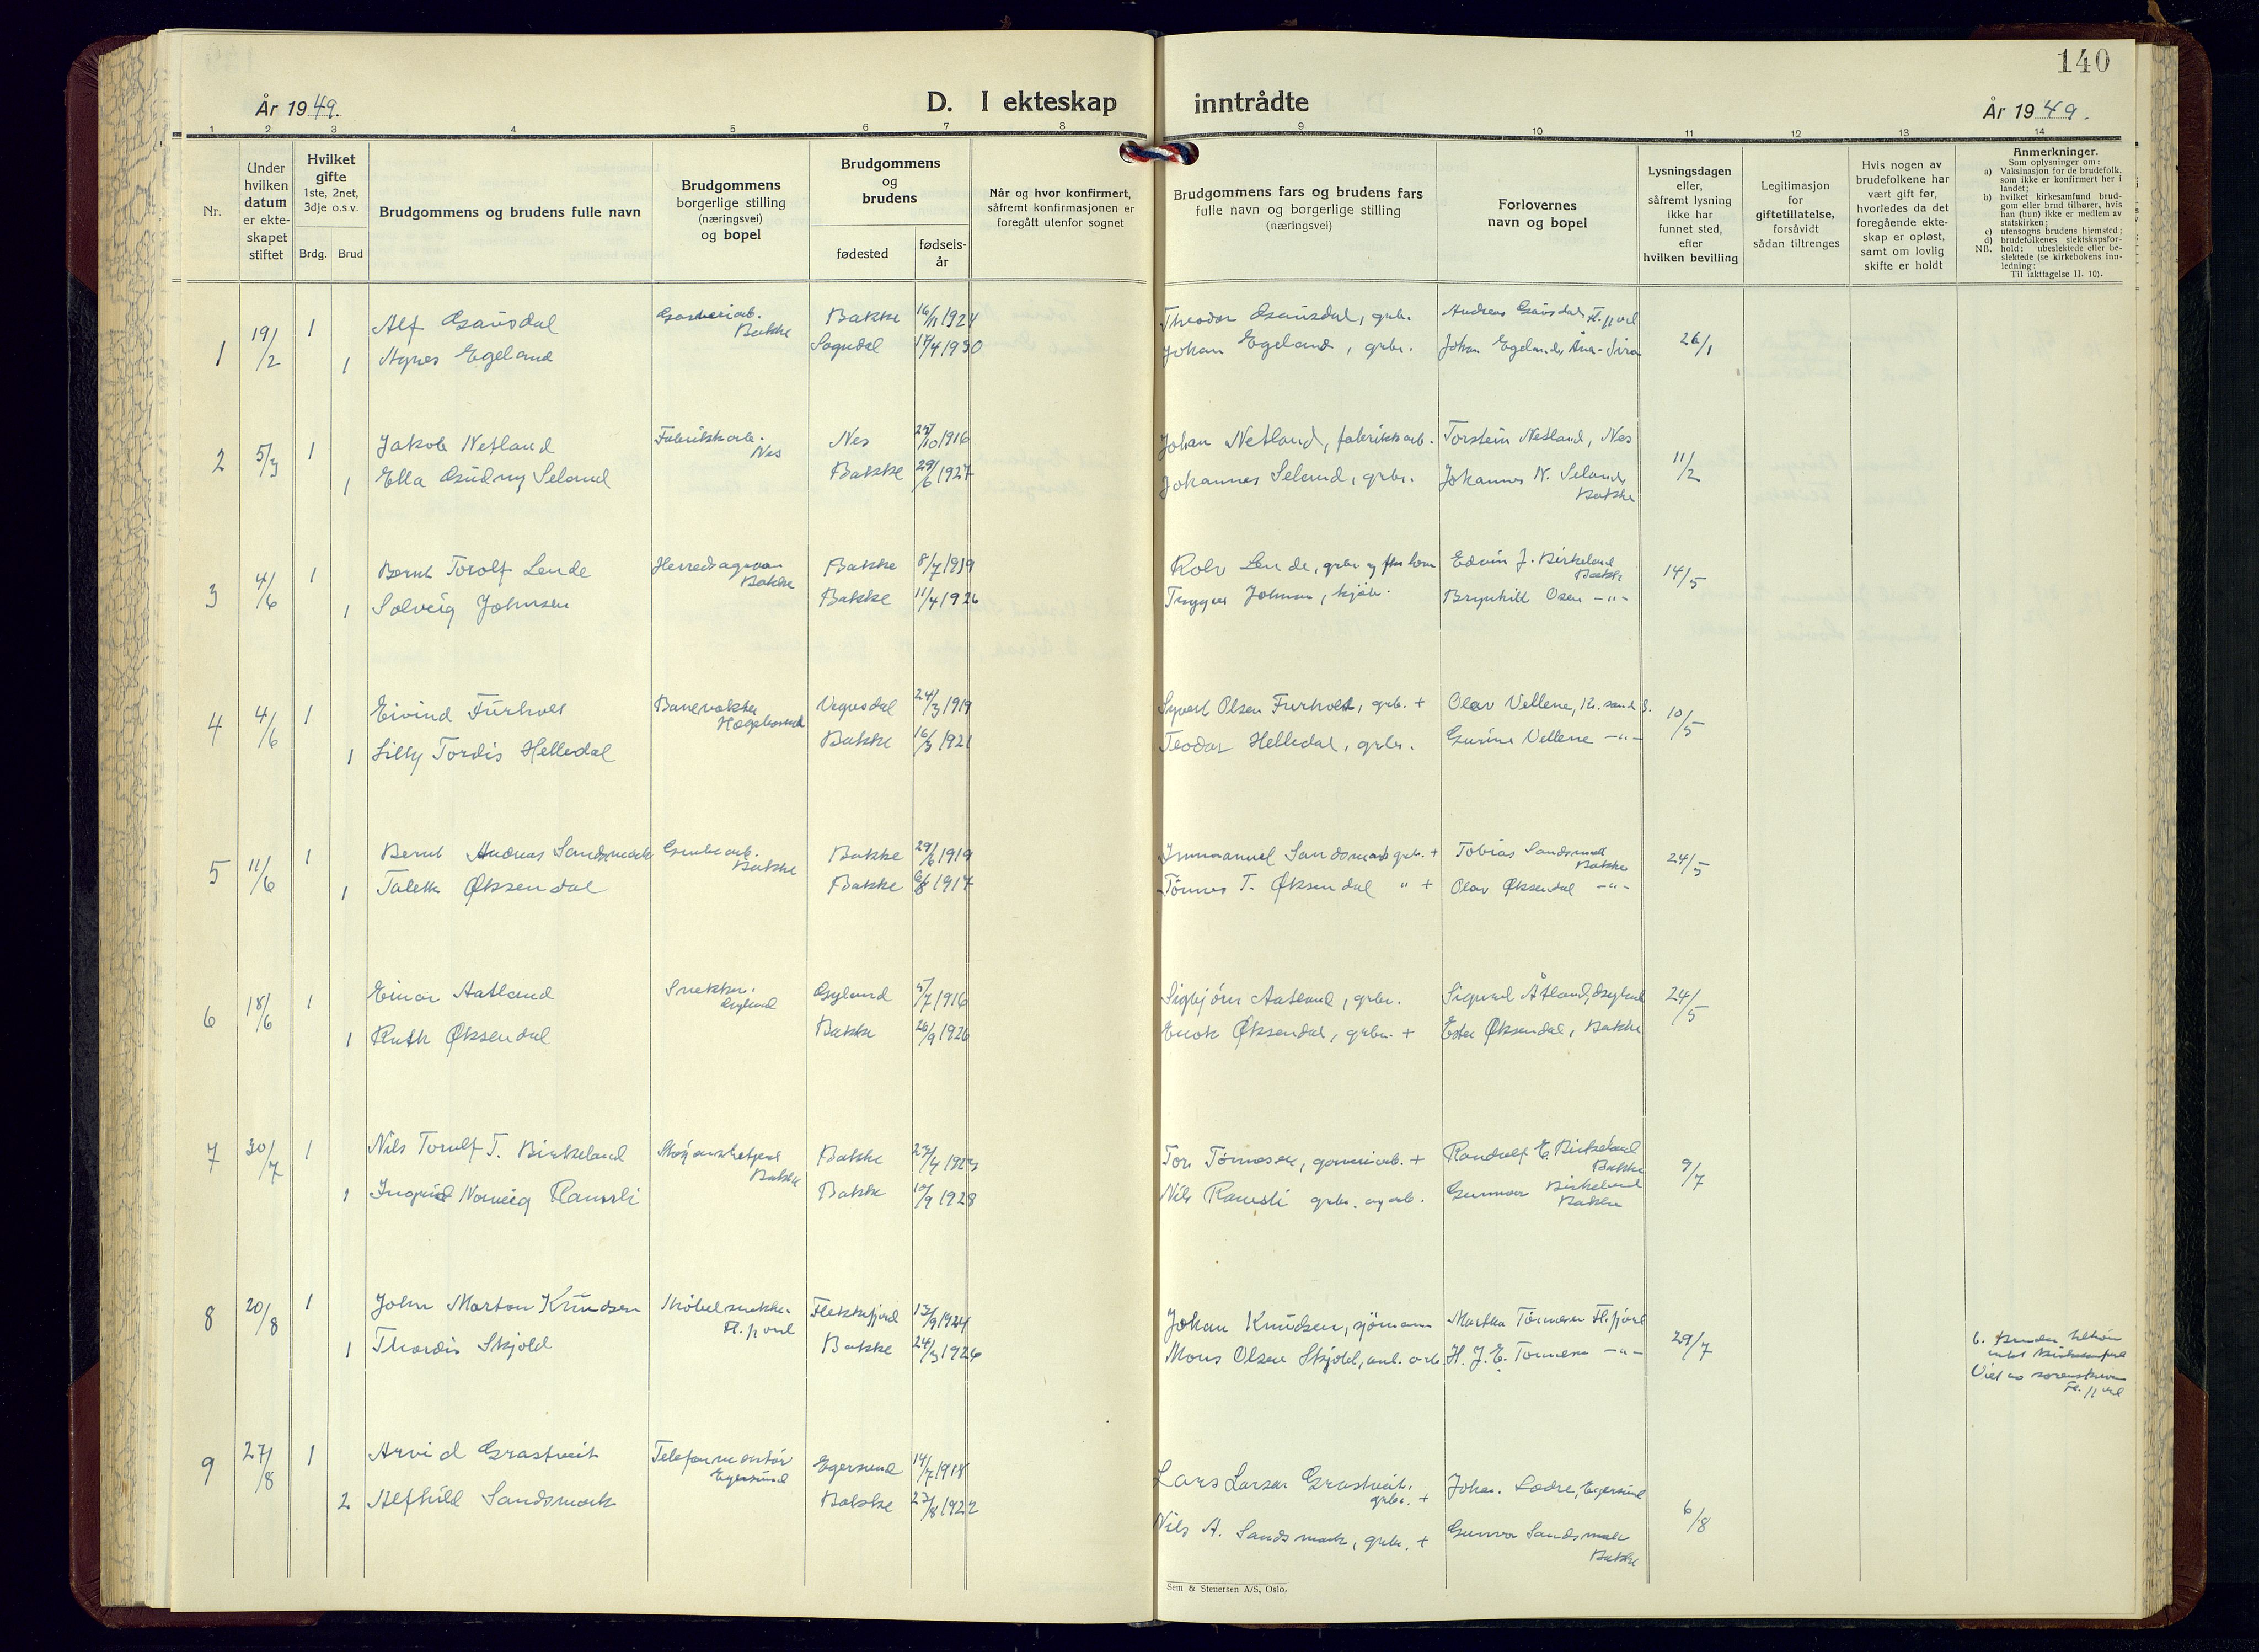 140
År 1949.
D. I ekteskap inntrådte
År 1949.
1 2 3 4 5 6 7 8 9 10 11 12 13 14
Nr.
Under hvilken datum er ekte- skapet stiftet
Hvilket gifte
1ste, 2net, 3dje o.s.v.
Brdg. Brud
Brudgommens og brudens fulle navn
Brudgommens borgerlige stilling (næringsvei) og bopel
Brudgommens og brudens
fødested
fødsels- år
Når og hvor konfirmert, såfremt konfirmasjonen er foregått utenfor sognet
Brudgommens fars og brudens fars
fulle navn og borgerlige stilling
(næringsvei)
Forlovernes navn og bopel
Lysningsdagen eller, såfremt lysning ikke har funnet sted, efter hvilken bevilling
Legitimasjon for giftetillatelse, forsåvidt sådan tiltrenges
Hvis nogen av brudefolkene har vært gift før, hvorledes da det foregående ekte- skap er opløst, samt om lovlig skifte er holdt
Anmerkninger.
Som oplysninger om:
a) Vaksinasjon for de brudefolk, som ikke er konfirmert her i landet;
b) hvilket kirkesamfund brud- gom eller brud tilhører, hvis han (hun) ikke er medlem av statskirken;
c) utensogns brudens hjemsted;
d) brudefolkenes slektskapsfor- hold: ubeslektede eller be- slektede (se kirkebokens inn- ledning:
NB.
Til iakttagelse II. 10).
1 19/2 1 Alf Gausdal Garveriarb. Bakke Bakke 16/11 1924 Theodor Gausdal, grbr. Andreas Gausdal, Fl.fjord 26/1
1 Agnes Egeland Sogndal 1930 Johan Egeland, grbr. Johan Egeland, Åna-Sira
2 5/3 1 Jakob Netland Fabrikkarb. Nes Nes 1916 Johan Netland, fabrikkarb. Torstein Netland, Nes 11/2
1 Ella Gudny Seland Bakke 29/6 1927 Johannes Seland, grbr. Johannes N. Seland, Bakke
3 4/6 1 Bernt Torolf Lende Herredsagron Bakke Bakke 8/7 1919 Rolv Lende, grbr. Edvin J. Birkeland Bakke 14/5
1 Solveig Johnsen Bakke 11/4 1926 Trygve Johnsen, kjøb. Brynhild Osen -"-
4 4/6 1 Eivind Furholt Banevokter Hægebostad Vegusdal 24/3 1919 Syvert Olsen Furholt, grb. + Olav Vellene, Kr.sand S. 10/5
1 Lilly Tordis Helledal Bakke 16/3 1921 Teodor Helledal, grbr. Gurine Vellene -"-
5 11/6 1 Bernt Andreas Sandsmark Grubearb. Bakke Bakke 29/6 1919 Immanuel Sandsmark grb. + Tobias Sandsmark Bakke 24/5
1 Talette Øksendal Bakke 6/8 1917 Tønnes T. Øksendal " + Olav Øksendal -"-
6 18/6 1 Einar Aatland Snekker. Gyland Gyland 5/7 1916 Sigbjørn Aatland, grbr. Sigurd Åtland, Gyland 24/5
1 Ruth Øksendal Bakke 26/9 1926 Enok Øksendal, grbr. + Ester Øksendal, Bakke
7 30/7 1 Nils Torulf T. Birkeland Bakke Bakke Tor Tønnesen, garveriarb. + Randulf E. Birkeland Bakke 9/7
1 Ingrid Norveig Ramsli Bakke 10/9 1928 Nils Ramsli grbr. og arb. Gunnar Birkeland Bakke
8 20/8 1 John Morton Knudsen Møbelsnekker Fl.fjord Flekkefjord 13/9 1924 Johan Knudsen, sjømann Martha Tønnesen Fl.fjord 29/7
1 Thordis Skjold Bakke 24/3 1926 Mons Olsen Skjold, anl. arb. H. J. E. Tønnesen -"-
b.
Viet av sorenskriver Fl.fjord
9 27/8 1 Arvid Grastveit Telefonmontør Egersund Egersund 14/7 1918 Lars Larsen Grastveit, grbr. + Johan. Lodre, Egersund 6/8
2 Alfhild Sandsmark Bakke 23/8 1922 Nils A. Sandsmark, grbr. + Gunvor Sandsmark Bakke
Sem & Stenersen A/S, Oslo.